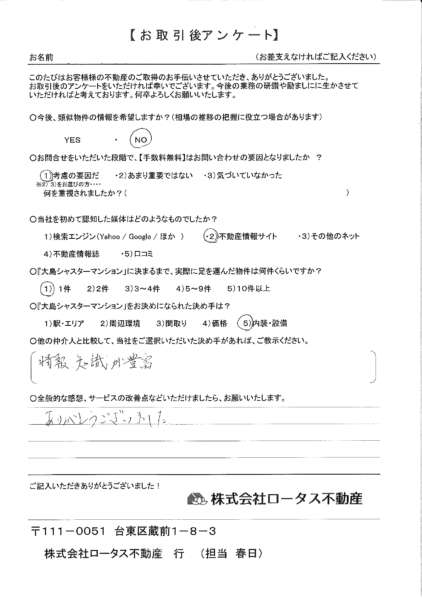 【お取引後アンケート】
お名前 (お差支えなければご記入ください)
このたびはお客様様の不動産のご取得のお手伝いさせていただき、ありがとうございました。
お取引後のアンケートをいただければ幸いでございます。今後の業務の研鑽や励ましにに生かさせて
いただければと考えております。何卒よろしくお願いいたします。
○今後、類似物件の情報を希望しますか?(相場の推移の把握に役立つ場合があります)
YES ・ NO
○お問合せをいただいた段階で、【手数料無料】はお問い合わせの要因となりましたか ?
1)考慮の要因だ ・2)あまり重要ではない ・3)気づいていなかった
※2)3)をお選びの方・・・・
何を重視されましたか?( )
○当社を初めて認知した媒体はどのようなものでしたか?
1)検索エンジン(Yahoo / Google / ほか ) ・2)不動産情報サイト ・3)その他のネット
4)不動産情報誌 ・5)口コミ
○『大島シャスターマンション』に決まるまで、実際に足を運んだ物件は何件くらいですか?
1) 1件 2)2件 3)3~4件 4)5~9件 5)10件以上
○『大島シャスターマンション』をお決めになられた決め手は?
1)駅・エリア 2)周辺環境 3)間取り 4)価格 5)内装・設備
○他の仲介人と比較して、当社をご選択いただいた決め手があれば、ご教示ください。
情報 知識が豊富
○全般的な感想、サービスの改善点などいただけましたら、お願いいたします。
ありがとうございました
ご記入いただきありがとうございました!
株式会社ロータス不動産
〒111-0051 台東区蔵前1-8-3
株式会社ロータス不動産 行 (担当 春日)